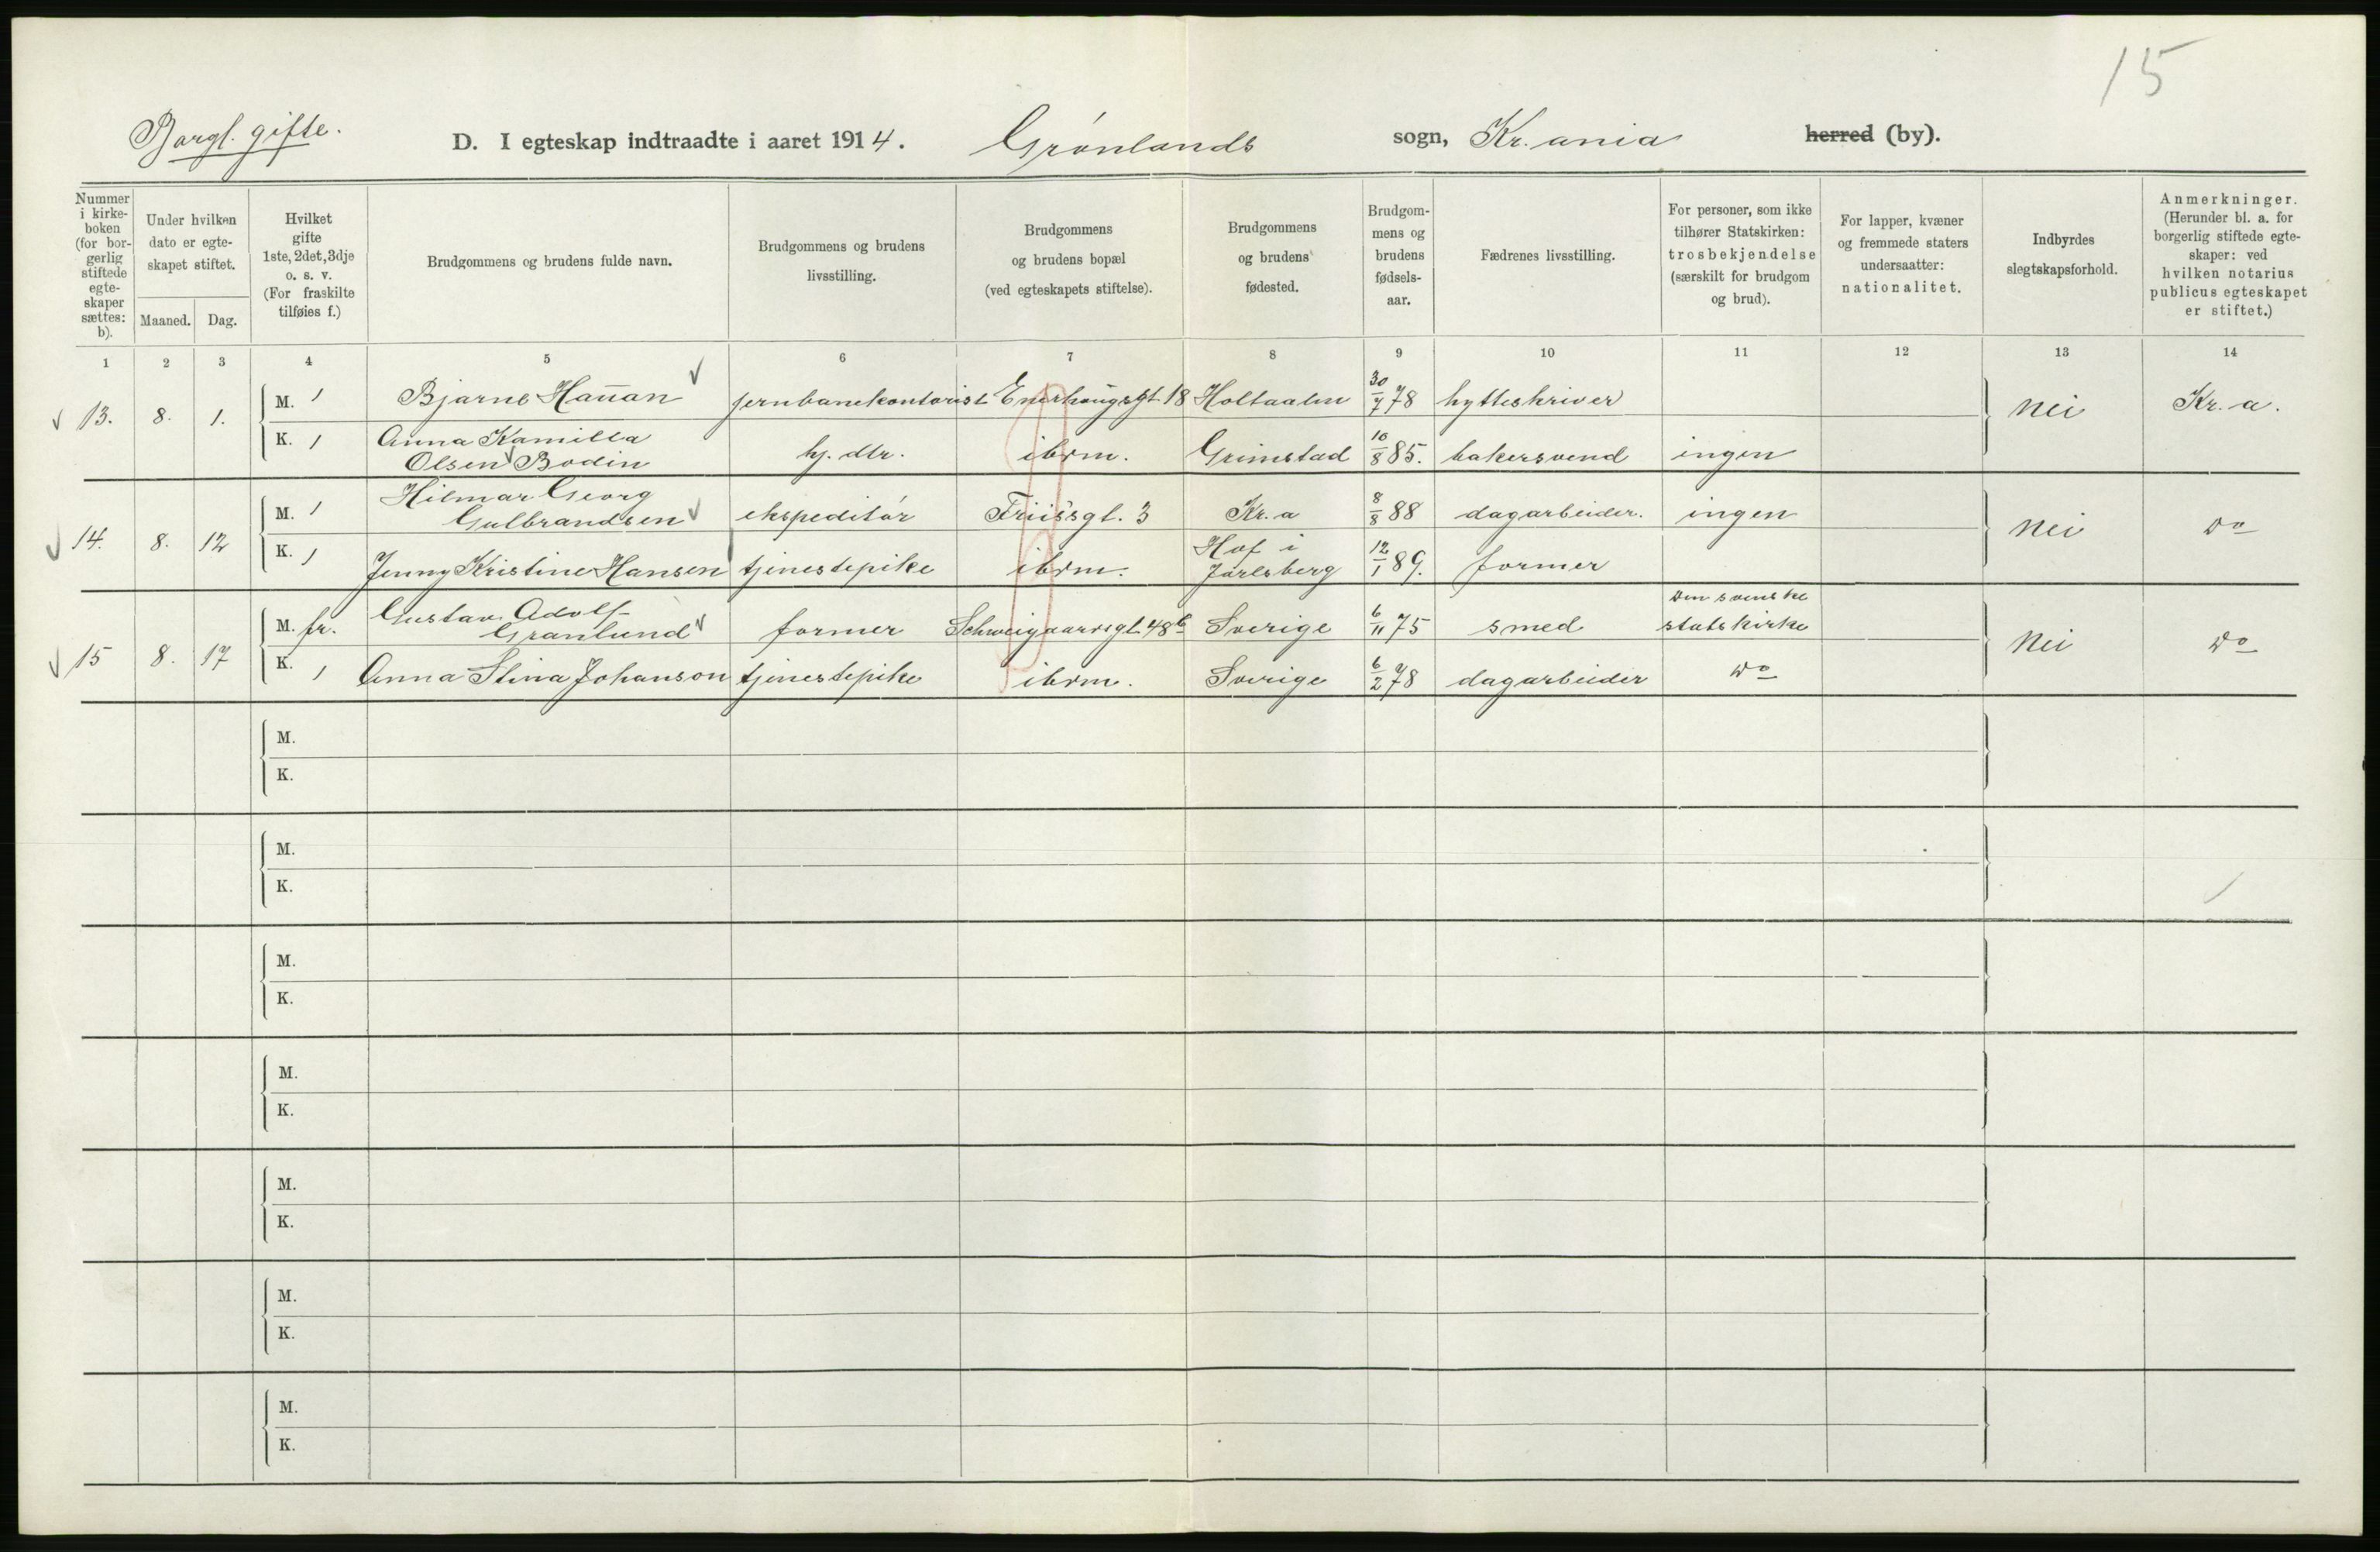 15
Borgl. gifte.
D. I egteskap indtraadte i aaret 1914. Grønlands sogn, Kr.ania herred (by).
Nummer i kirke-boken (for bor-gerlig stiftede egte-skaper sættes: b).
Under hvilken dato er egte-skapet stiftet.
Maaned. Dag.
Hvilket gifte 1ste, 2det, 3dje o. s. v. (For fraskilte tilføies f.)
Brudgommens og brudens fulde navn.
Brudgommens og brudens livsstilling.
Brudgommens og brudens bopæl (ved egteskapets stiftelse).
Brudgommens og brudens fødested.
Brudgom-mens og brudens fødsels-aar.
Fædrenes livsstilling.
For personer, som ikke tilhører Statskirken: trosbekjendelse (særskilt for brudgom og brud).
For lapper, kvæner og fremmede staters undersaatter: nationalitet.
Indbyrdes slegtskapsforhold.
Anmerkninger. (Herunder bl. a. for borgerlig stiftede egte-skaper: ved hvilken notarius publicus egteskapet er stiftet.)
1 2 3 4 5 6 7 8 9 10 11 12 13 14
13. 8. 1. M. 1 Bjarne Hauan jernbanekontorist Enerhaugsgt 18 Holtaalen 30/7 78 hytteskriver nei Kr. a.
K. 1 Anna Kamilla
Olsen Bodin hj. dtr. ibdm. Grimstad 10/8 85. bakersvend ingen
14. 8. 12 M. 1 Hilmar Georg
Gulbrandsen ekspeditør Friisgt. 3 Kr. a 8/8 88 dagarbeider. ingen nei do
K. 1 Jenny Kristine Hansen tjenestepike ibdm. Hof i
Jarlsberg 12/1 89. former
15 8. 17 M. fr. Gustav Adolf
Granlund former Schweigaardsgt 48 b Sverige 6/11 75 smed Den svenske
statskirke nei do
K. 1 Anna Stina Johanson tjenestepike ibdm. Sverige 6/2 78 dagarbeider do
M.
K.
M.
K.
M.
K.
M.
K.
M.
K.
M.
K.
M.
K.